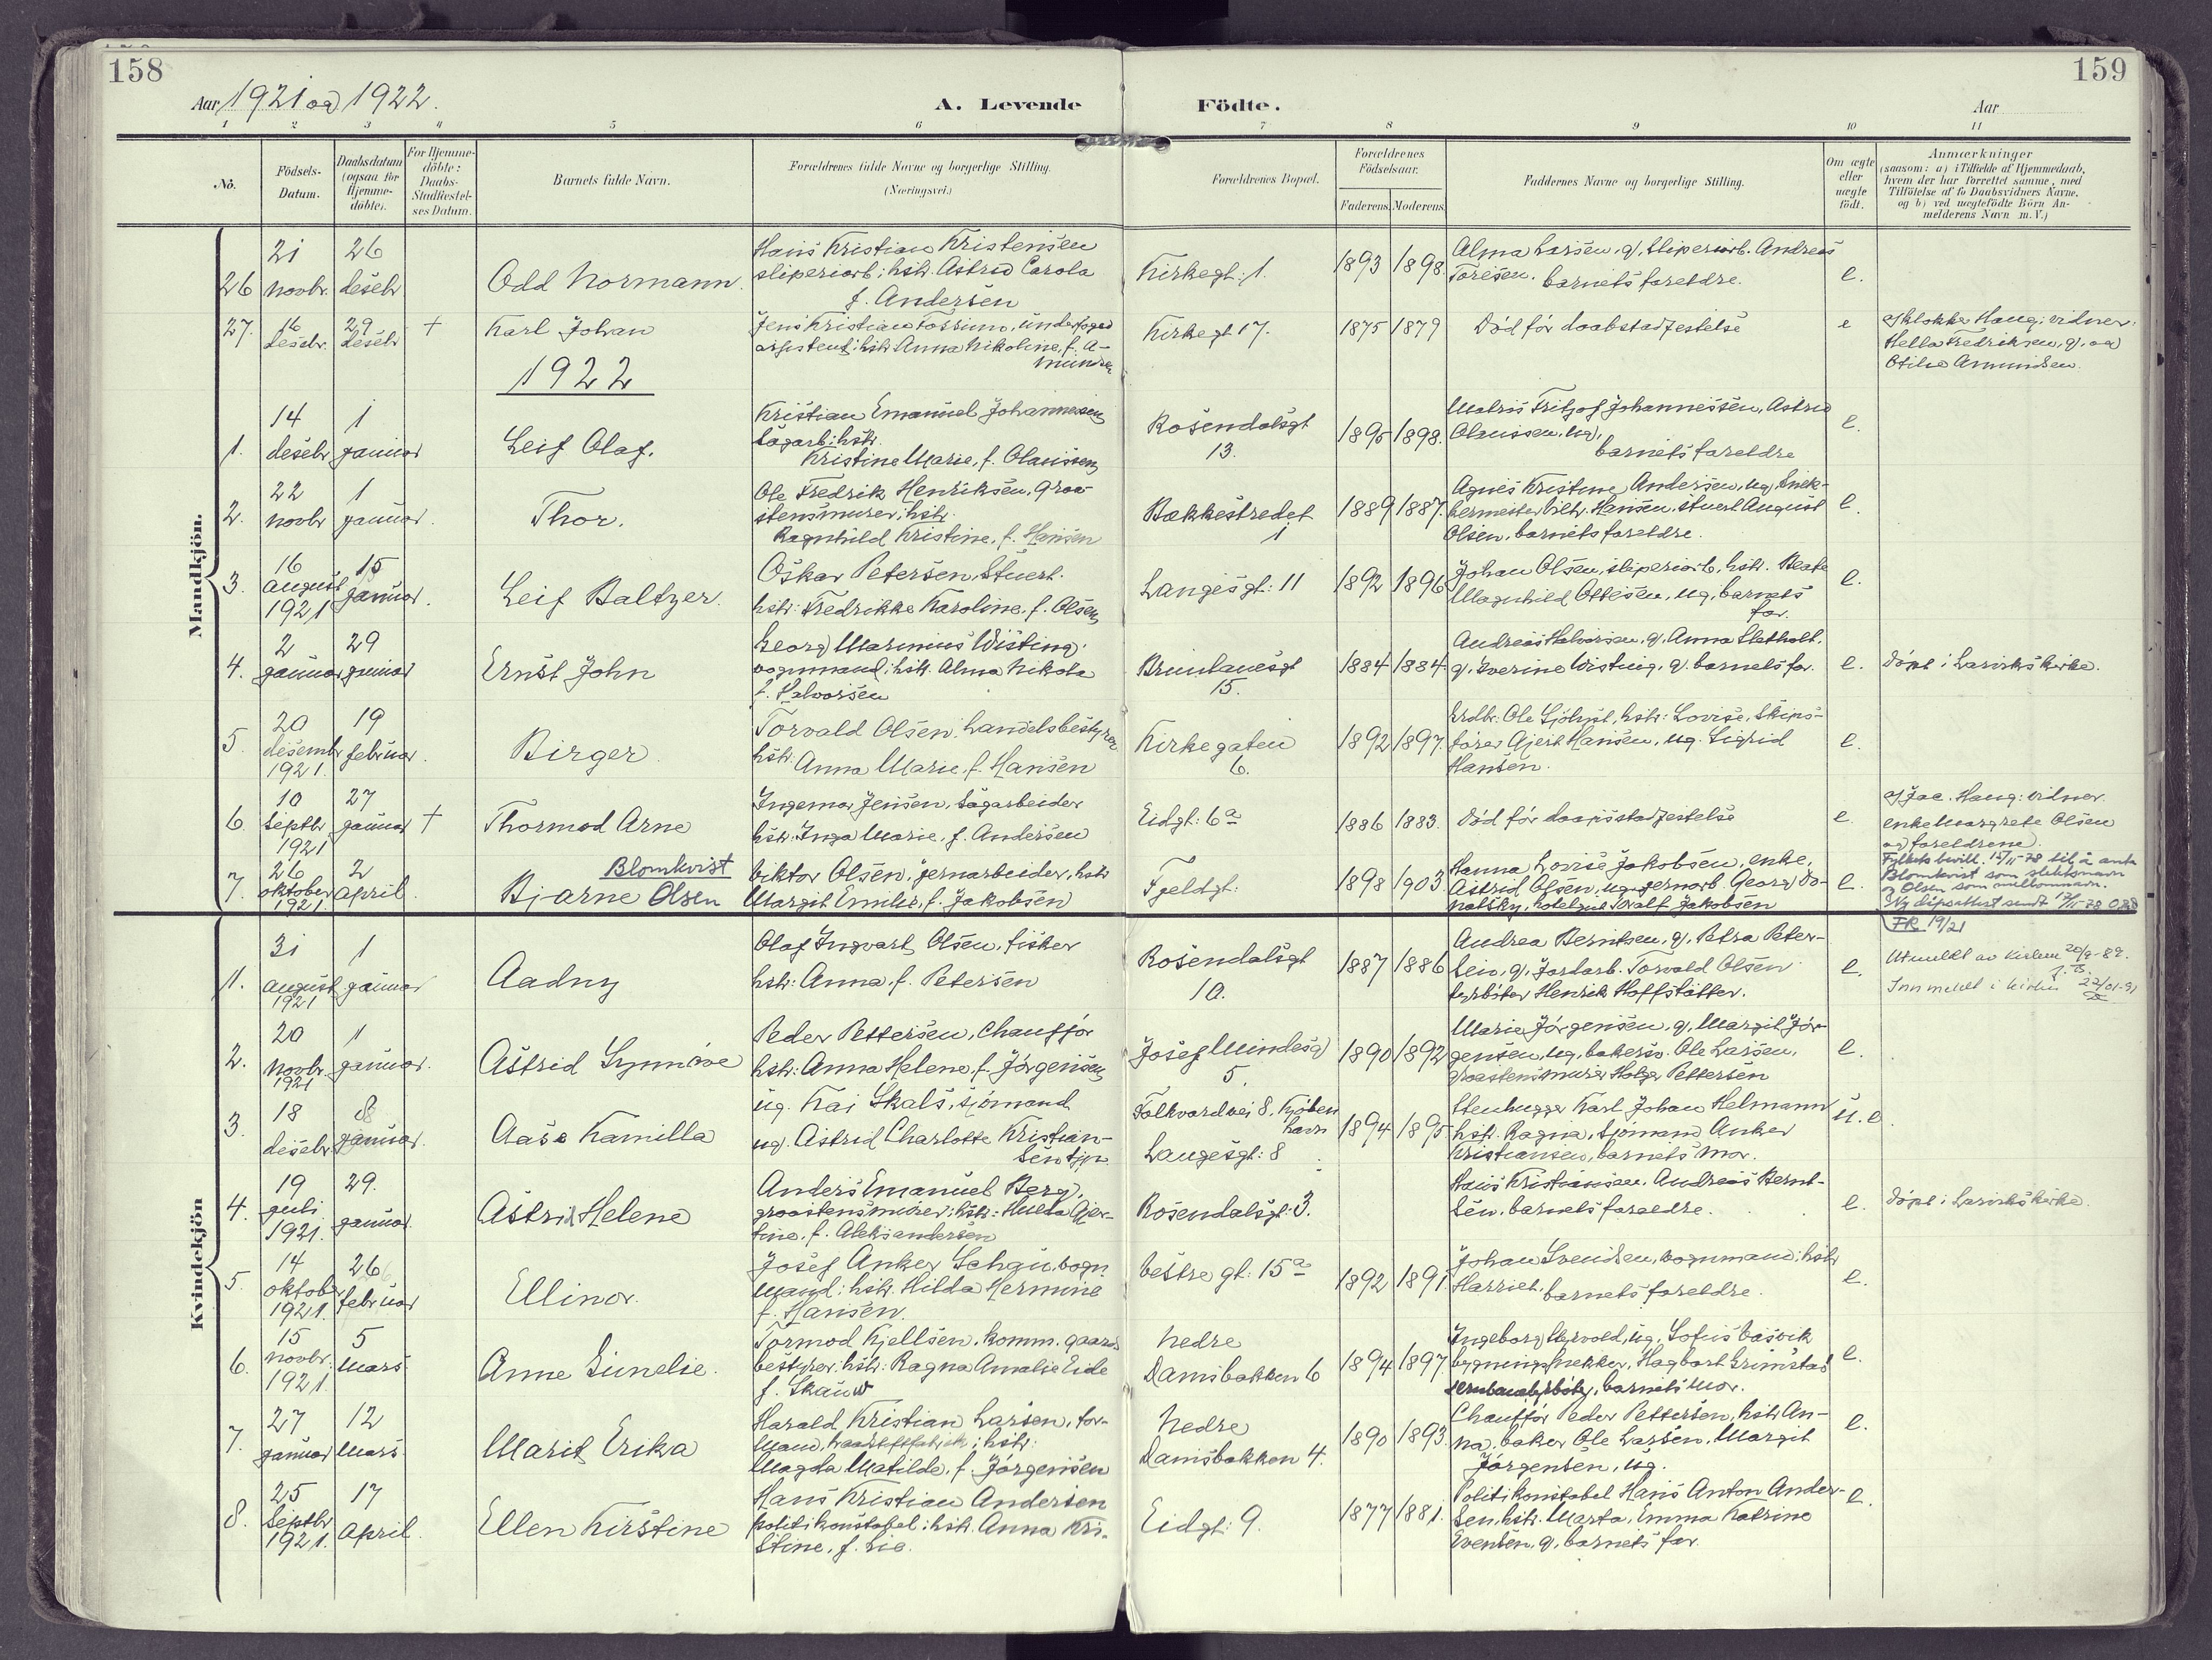 158
159
Aar 1921 og 1922.
A. Levende Födte.
Aar
1 2 3 4 5 6 7 8 9 10 11
No.
Födsels-
Datum.
Daabsdatum
(ogsaa for
Hjemme-
döbte).
For Hjemme-
döbte:
Daabs-
Stadfæstel-
ses Datum.
Barnets fulde Navn.
Forældrenes fulde Navne og borgerlige Stilling.
(Næringsvei.)
Forældrenes Bopæl.
Forældrenes
Födselsaar.
Faderens. Moderens.
Faddernes Navne og borgerlige Stilling.
Om ægte
eller
uægte
födt.
Anmærkninger
(saasom: a) i Tilfælde af Hjemmedaab,
hvem der har forrettet samme, med
Tilföielse af to Daabsvidners Navne,
og b) ved uægtefödte Börn An-
melderens Navn m. V.)
Mandkjön.
26
21
novbr.
26
desebr
Odd Normann.
Hans Kristian Kristensen
sliperiarb; hstr. Astrid Carola
f. Andersen
Kirkegt: 1.
1893
1898.
Alma Larsen, g, sliperiarb. Andreas
Toresen. barnets foreldre.
e.
27.
16
desebr.
29
desebr
+
Karl Johan
Jens Kristian Fossum, underfoged
assistent; hstr Anna Nikoline, f. A-
mundsen
Kirkegt 17.
1875
1879
Död før daabstadfestelse
e
af klokker Haug; vidner:
Hella Fredriksen, g, og
Otilie Amundsen.
1922
1.
14
desebr
1
januar
Leif Olaf.
Kristian Emanuel Johannesen
Sagarb; hstr.
Kristine Marie, f. Olaussen
Rosendalsgt
13.
1895
1898.
Fritjof Johannessen, Astrid
Olaussen, ug,
barnets foreldre
e.
2.
22
novbr
1
januar.
Thor.
Ole Fredrik Henriksen, graa-
stensmurer; hstr.
Ragnhild Kristine, f. Hansen
Bækkestredet
1
1889
1887.
Agnes Kristine Andersen, ug, Snek-
kermester Hansen, stuert August
Olsen, barnets foreldre.
e.
3.
16
august
1921
15
januar.
Leif Baltzer.
Oskar Petersen, Stuert.
hstr: Fredrikke Karoline, f. Olsen
Langesgt: 11
1892
1896
Johan Olsen, sliperiarb, hstr. Beate
Magnhild Ottesen, ug, barnets
far.
e.
4.
2
januar
29
januar
Ernst John
Georg Marinius Wisting.
vognmand; hstr. Alma Nikola
f. Halvorsen
Brunlanesgt
15.
1884
1884.
Andreas Halvorsen, g. Anna Sletholt.
g, Iverine Wisting, g. barnets far.
e.
Döpt i Larviks kirke.
5.
20
desembr
1921.
19
februar.
Birger.
Torvald Olsen, handelsbestyrer
hstr. Anna Marie, f. Hansen
Kirkegaten
6.
1892
1897.
Ole Sjöqvist, hstr: Lovise, Skips-
förer Ajert Hansen, ug. Sigrid
Hansen.
e.
6.
10
septbr
1921
27
januar
+
Thormod Arne
Ingemar Jensen, Sagarbeider
hstr: Inga Marie, f. Andersen
Eidgt: 6a
1886
1883.
Död før daapsstadfestelse
e.
af Jac. Haug: vidner.
enke Margrete Olsen
og foreldrene.
7.
26
oktober
1921.
2
april.
Blomkvist
Bjarne Olsen
Viktor Olsen, jernarbeider, hstr
Margit Emilie, f. Jakobsen
Fjeldgt:
1898
1903.
Hanna Lovise Jakobsen, enke,
Astrid Olsen, ug, jernarb. Georg Do-
natsky, Toralf Jakobsen
e.
Fylkets bevill. 15/11-78 til å anta
Blomkvist som slektsnavn
og Olsen som mellomnavn.
Ny dåpsattest sendt 17/11-78
Kvindekjön
1.
31
august
1921
1
januar
Aadny
Olaf Ingvart Olsen, fisker
hstr: Anna, f. Petersen
Rosendalsgt
10.
1887
1886
Andrea Berntsen, g, Petra Peter-
sen, g, Jordarb. Torvald Olsen
fyrböter Henrik Hoffstätter.
e.
FR 19/21
Utmeldt av kirken 20/9-82.
Innmeldt i kirken 22/01-91
2.
20
novbr.
1921
1
januar.
Astrid Synnöve
Peder Pettersen, Chauffør
hstr: Anna Helene, f. Jörgensen
Josef Mindesg
5.
1890
1892
Marie Jörgensen, g, Margit Jör-
gensen, ug, bakersv. Ole Larsen,
graastensmurer Holger Pettersen
e.
3.
18
desebr.
8
januar.
Aase Kamilla
ug. Kai Skals, sjömand
ug. Astrid Charlotte Kristian-
sen tjp.
Falkvardvei 8. Kjöben
havn
Langesgt: 8
1894
1895.
Stenhugger Karl Johan Helmann
hstr. Ragna, Sjömand Anker
Kristiansen, barnets mor.
u. e.
4.
19
juli
1921.
29.
januar.
Astrid Helene
Anders Emanuel Berg,
graastensmurer; hstr: Hulda Gjer-
tine, f. Aleksandersen
Rosendalsgt: 3.
Hans Kristiansen, Andreas Bernt-
sen, barnets foreldre.
e.
Döpt i Larviks kirke.
5.
14
oktober
1921.
26
februar
Ellinor.
Josef Anker Schau, vogn.
mand: hstr. Hilda Hermine
f. Hansen.
Vestre gt: 15a
1892
1891.
Johan Svendsen, vognmand; hstr
Harriet, barnets foreldre.
e.
6.
15
novbr.
1921.
5
mars.
Anne Sunelie.
Tormod Kjellsen, komm. gaards
bestyrer; hstr: Ragna Amalie Eide
f. Skauw
Nedre
Damsbakken 6
1894
1897
Ingeborg ug, Sofus Vasvik
bygningssnekker, Hagbart Grimstad
barnets mor.
e.
7.
27
januar
12
mars.
Marit Erika
Harald Kristian Larsen, for-
mand, hstr:
Magda Matilde, f. Jörgensen
Nedre
Damsbakken 4.
1890
1893.
Chauffør Peder Pettersen, hstr An-
na, baker Ole Larsen, Margit
Jörgensen, ug.
e.
8.
25
Septbr
1921.
17
april.
Ellen Kirstine
Hans Kristian Andersen
politikonstabel; hstr. Anna Kri-
stine, f. Lie.
Eidgt: 9.
1877
1881.
Politikonstabel Hans Anton Ander-
sen, hstr. Marta, Emma Katrine
Evensen, g, barnets far.
e.